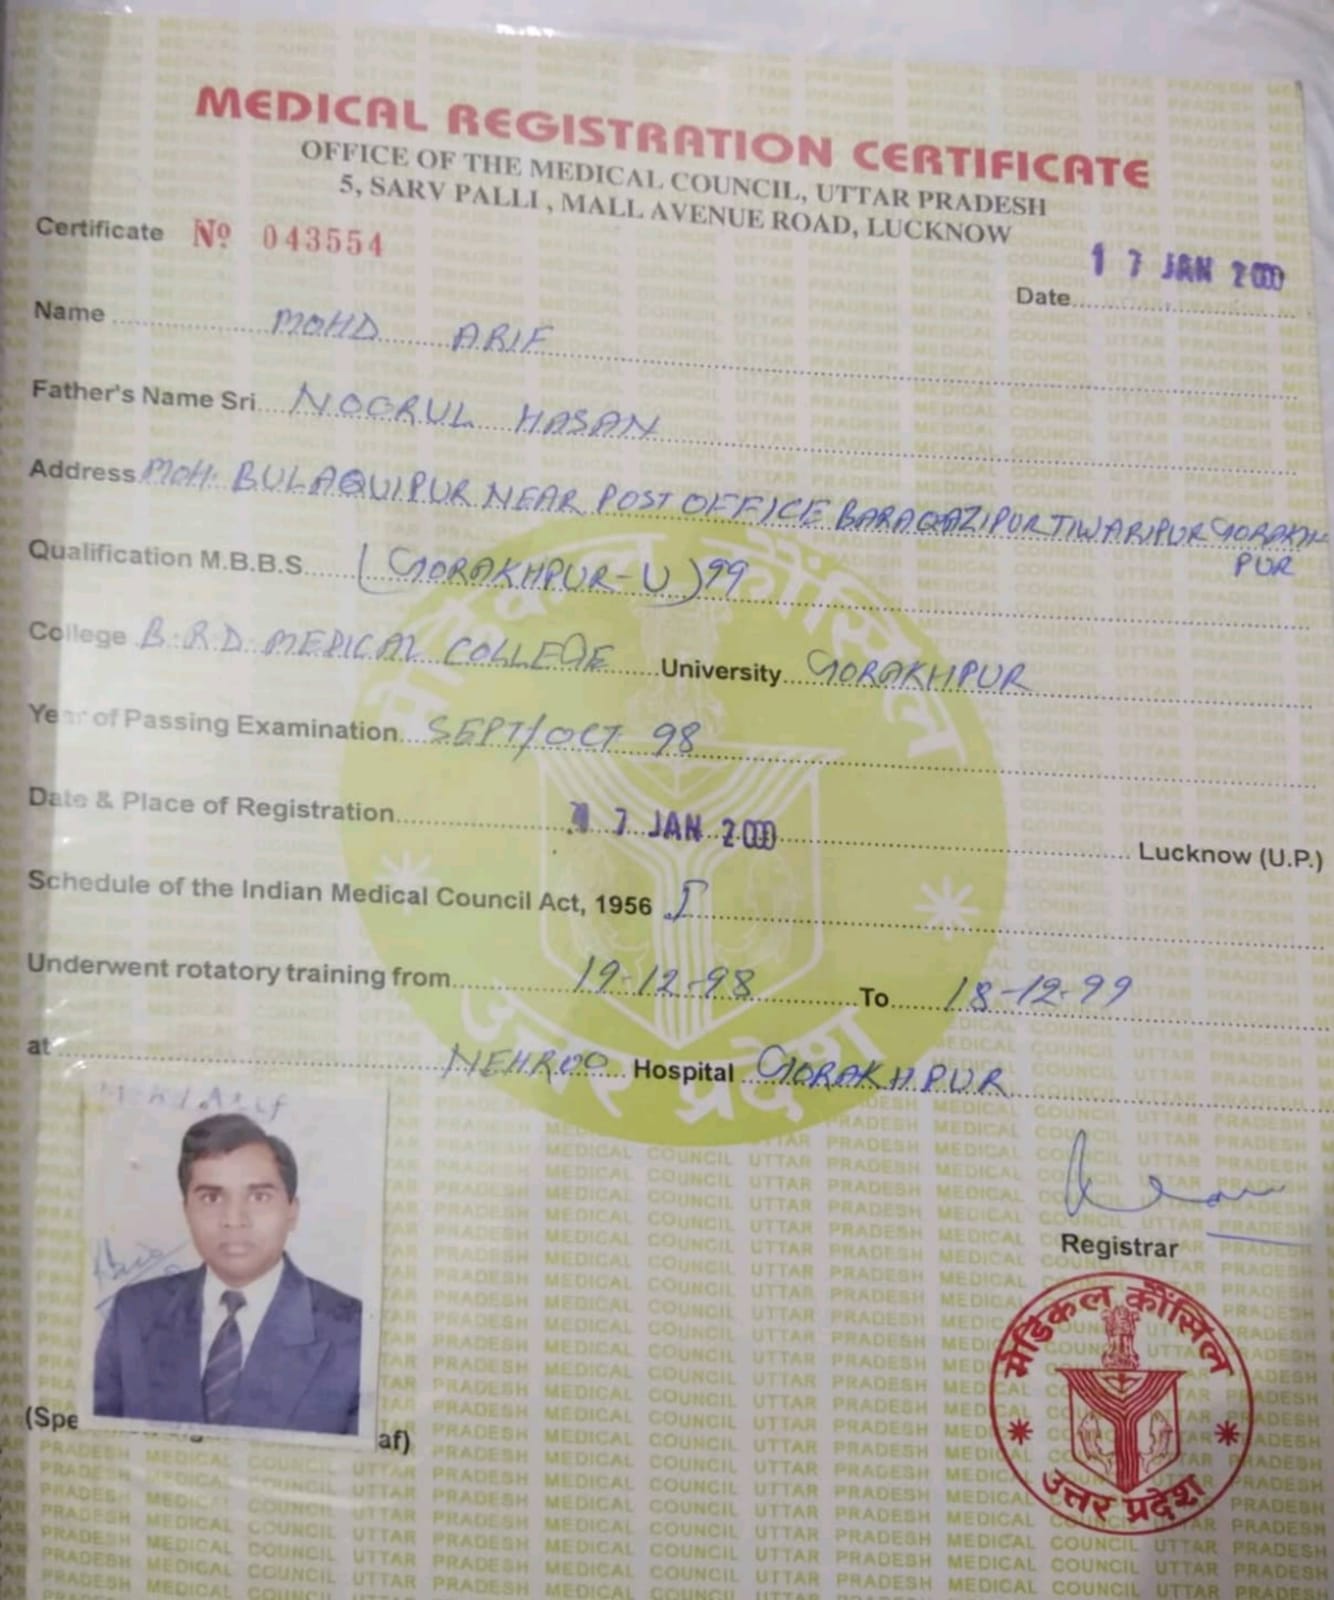 MEDICAL REGISTRATION CERTIFICATE
OFFICE OF THE MEDICAL COUNCIL, UTTAR PRADESH
5, SARV PALLI, MALL AVENUE ROAD, LUCKNOW
Certificate No 043554
17 JAN 2000
Date
Name MOHD ARIF
Father's Name Sri NOORUL HASAN
Address MOH. BULAQUIPUR NEAR POST OFFICE BARAGAZIPUR TIWARIPUR GORAKH
PUR
Qualification M.B.B.S. (GORAKHPUR-U) 99
College B.R.D. MEDICAL COLLEGE University GORAKHPUR
Year of Passing Examination SEPT/OCT 98
Date & Place of Registration 17 JAN 2000 Lucknow (U.P.)
Schedule of the Indian Medical Council Act, 1956 I
Underwent rotatory training from 19-12-98 To 18-12-99
at NEHROO Hospital GORAKHPUR
मेडिकल कौंसिल
उत्तर प्रदेश
Mohd. Arif
Registrar
मेडिकल कौंसिल
उत्तर प्रदेश
(Spe af)
MEDICAL COUNCIL UTTAR PRADESH